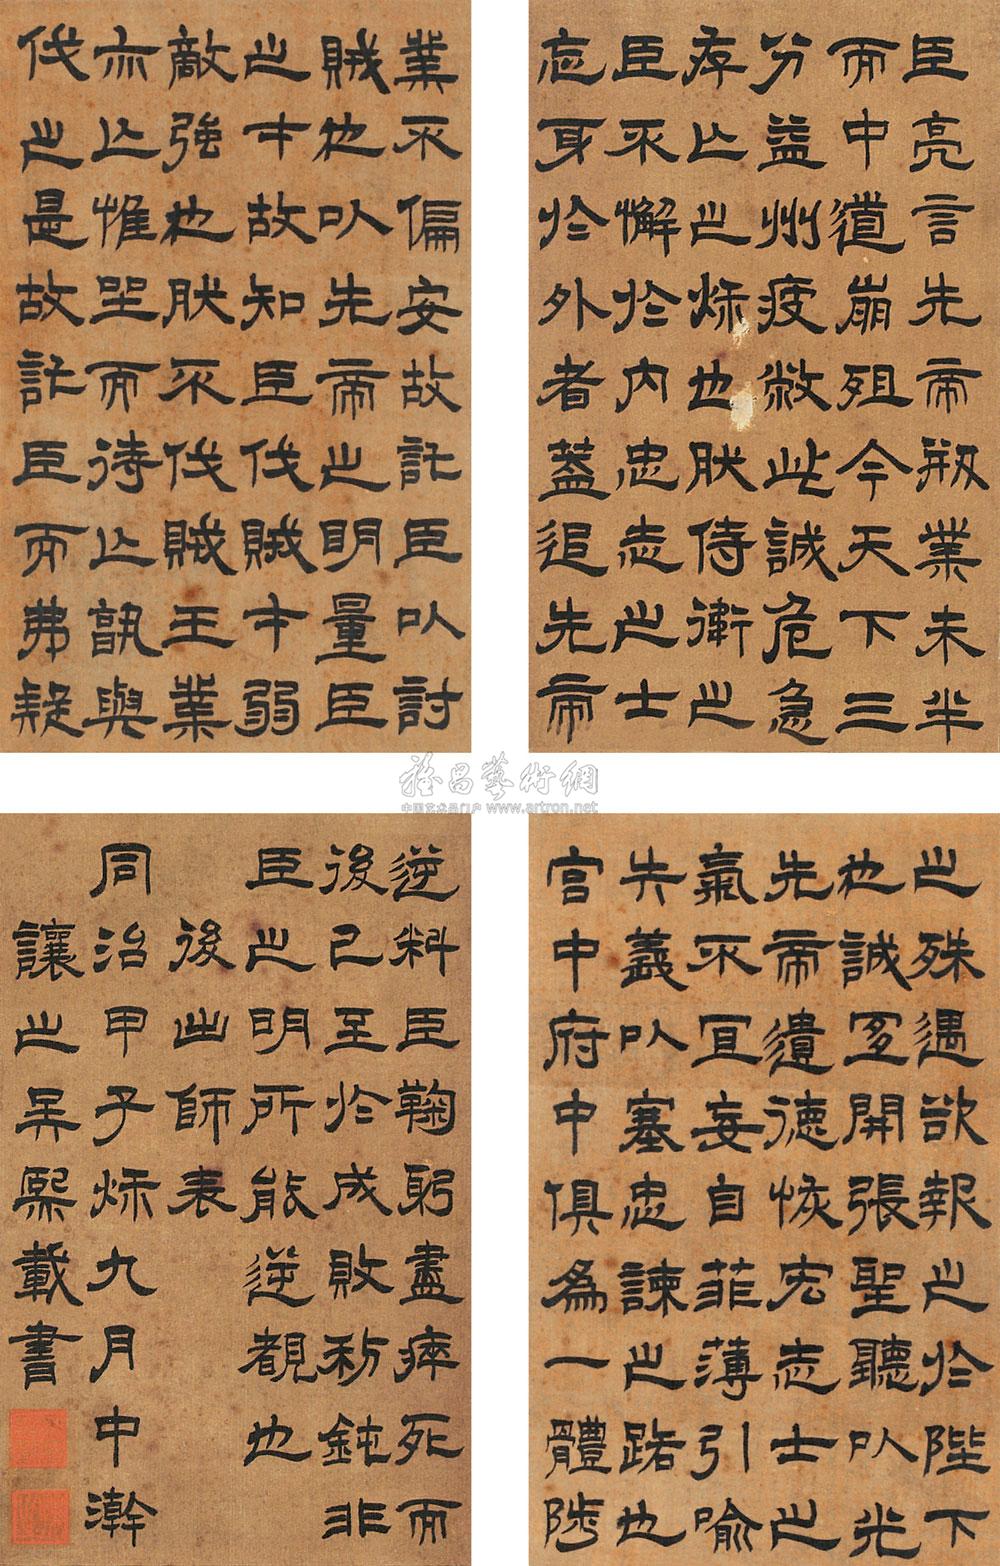 臣亮言先帝剏業未半
而中道崩殂今天下三
分益州疲敝此誠危急
存亾之烁也肰侍衛之
臣不懈於内忠志之士
忘身於外者蓋追先帝
之殊遇欲報之於陛下
也誠宜開張聖聽以光
先帝遺德恢宏志士之
氣不宜妄自菲薄引喻
失義以塞忠諫之路也
宫中府中俱為一體陟
業不偏安故託臣以討
賊也以先帝之明量臣
之才故知臣伐賊才弱
敵強也肰不伐賊王業
亦亾惟坐而待亾孰與
伐之是故託臣而弗疑
逆料臣鞠躬盡瘁死而
後已至於成敗利鈍非
臣之明所能逆覩也
後出師表
同治甲子烁九月中澣
讓之吴熙載書
雅昌藝術網
中国艺术品门户 www.artron.net